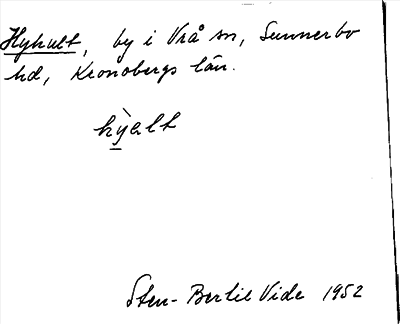 Hyhult, by i Vrå sn, Sunnerbo
hd, Kronobergs län.
hỳ̲alt
Sten-Bertil Vide 1952